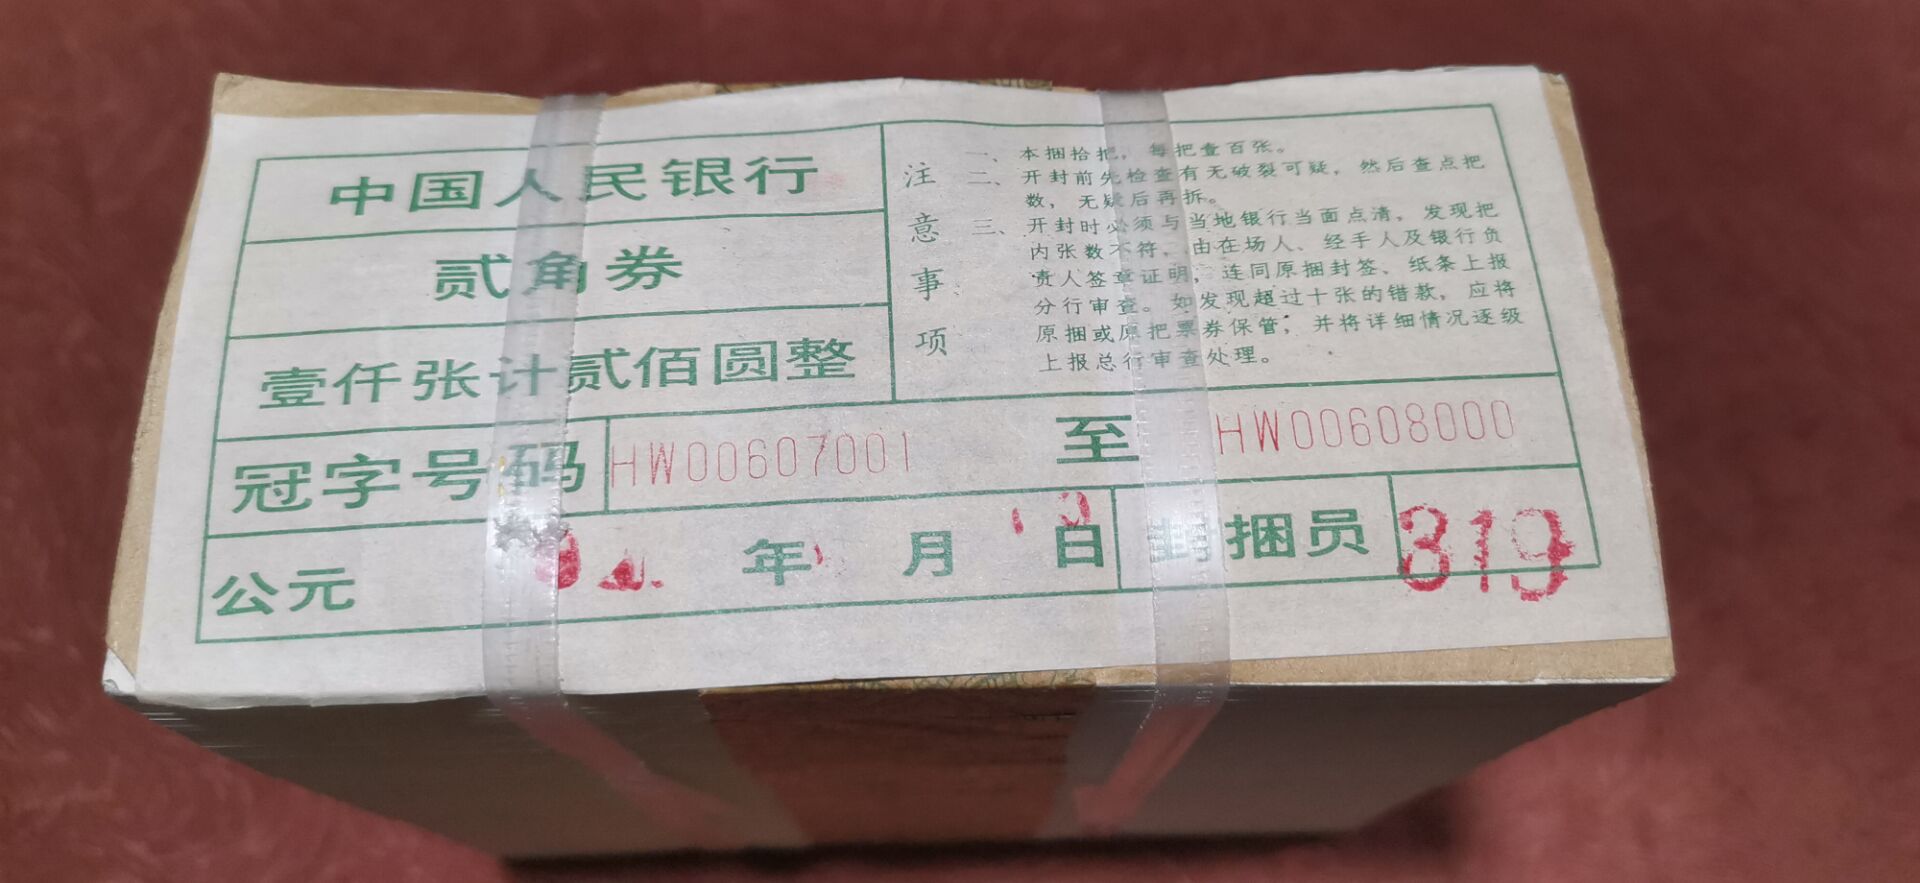 中国人民银行
贰角券
壹仟张计贰佰圆整
注意事项
一、本捆拾把，每把壹百张。
二、开封前先检查有无破裂可疑，然后查点把
数，无疑后再拆。
三、开封时必须与当地银行当面点清，发现把
内张数不符，由在场人、经手人及银行负
责人签章证明，连同原捆封签、纸条上报
分行审查。如发现超过十张的错款，应将
原捆或原把票券保管，并将详细情况逐级
上报总行审查处理。
冠字号码 HW00607001 至 HW00608000
公元 年 月 日 封捆员 319